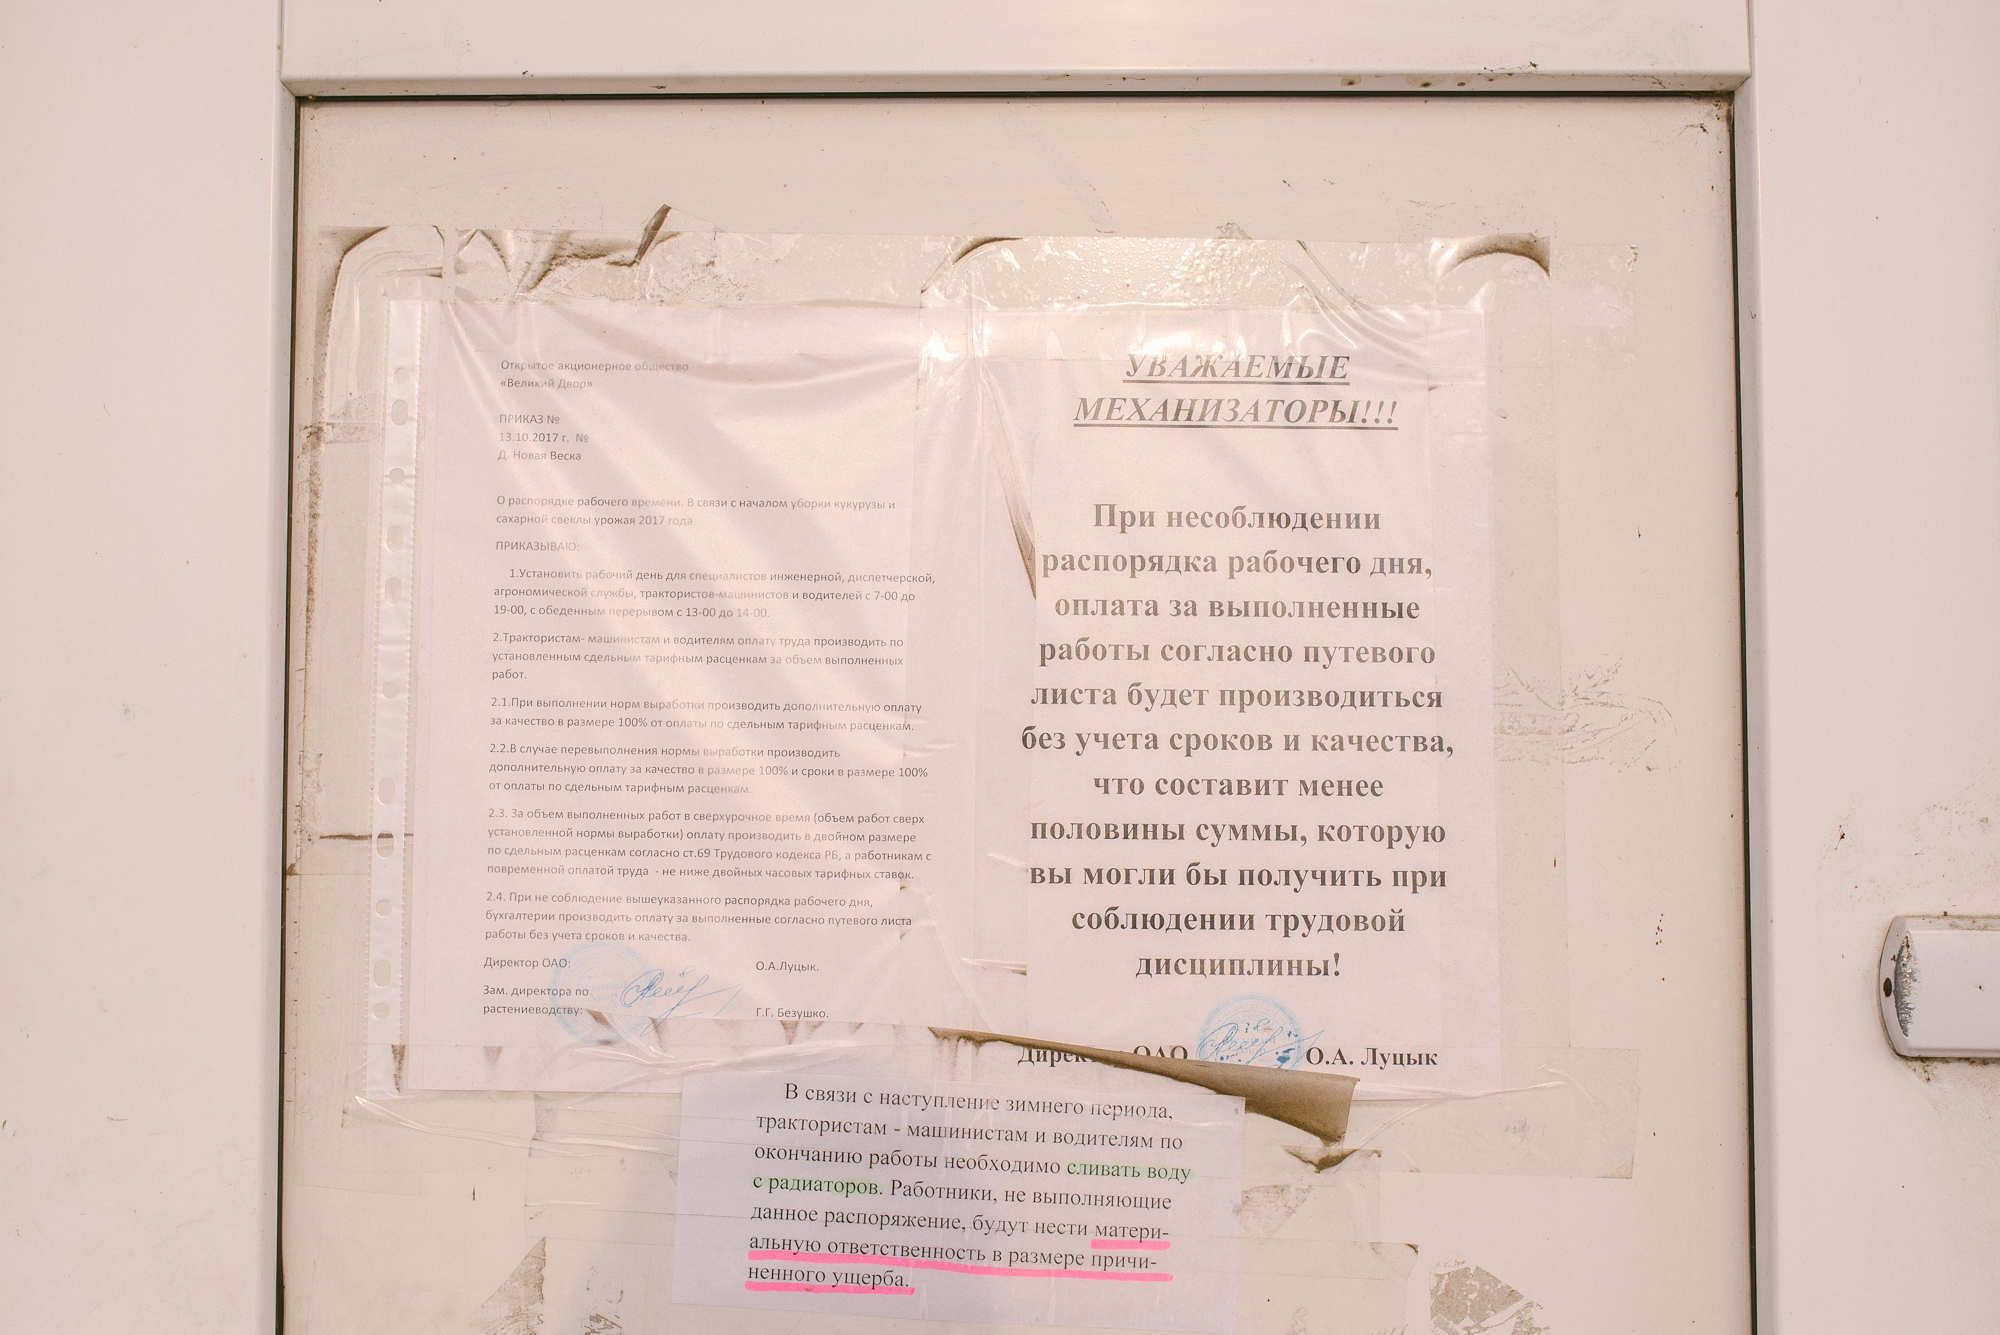 Открытое акционерное общество
«Великий Двор»
ПРИКАЗ №
13.10.2017 г. №
Д. Новая Веска
О распорядке рабочего времени. В связи с началом уборки кукурузы и
сахарной свеклы урожая 2017 года
ПРИКАЗЫВАЮ:
1.Установить рабочий день для специалистов инженерной, диспетчерской,
агрономической службы, трактористов-машинистов и водителей с 7-00 до
19-00, с обеденным перерывом с 13-00 до 14-00.
2.Трактористам- машинистам и водителям оплату труда производить по
установленным сдельным тарифным расценкам за объем выполненных
работ.
2.1.При выполнении норм выработки производить дополнительную оплату
за качество в размере 100% от оплаты по сдельным тарифным расценкам.
2.2.В случае перевыполнения нормы выработки производить
дополнительную оплату за качество в размере 100% и сроки в размере 100%
от оплаты по сдельным тарифным расценкам.
2.3. За объем выполненных работ в сверхурочное время (объем работ сверх
установленной нормы выработки) оплату производить в двойном размере
по сдельным расценкам согласно ст.69 Трудового кодекса РБ, а работникам с
повременной оплатой труда - не ниже двойных часовых тарифных ставок.
2.4. При не соблюдение вышеуказанного распорядка рабочего дня,
бухгалтерии производить оплату за выполненные согласно путевого листа
работы без учета сроков и качества.
Директор ОАО: О.А.Луцык.
Зам. директора по
растениеводству: Г.Г. Безушко.
УВАЖАЕМЫЕ
МЕХАНИЗАТОРЫ!!!
При несоблюдении
распорядка рабочего дня,
оплата за выполненные
работы согласно путевого
листа будет производиться
без учета сроков и качества,
что составит менее
половины суммы, которую
вы могли бы получить при
соблюдении трудовой
дисциплины!
Директор ОАО О.А. Луцык
В связи с наступление зимнего периода,
трактористам - машинистам и водителям по
окончанию работы необходимо сливать воду
с радиаторов. Работники, не выполняющие
данное распоряжение, будут нести матери-
альную ответственность в размере причи-
ненного ущерба.